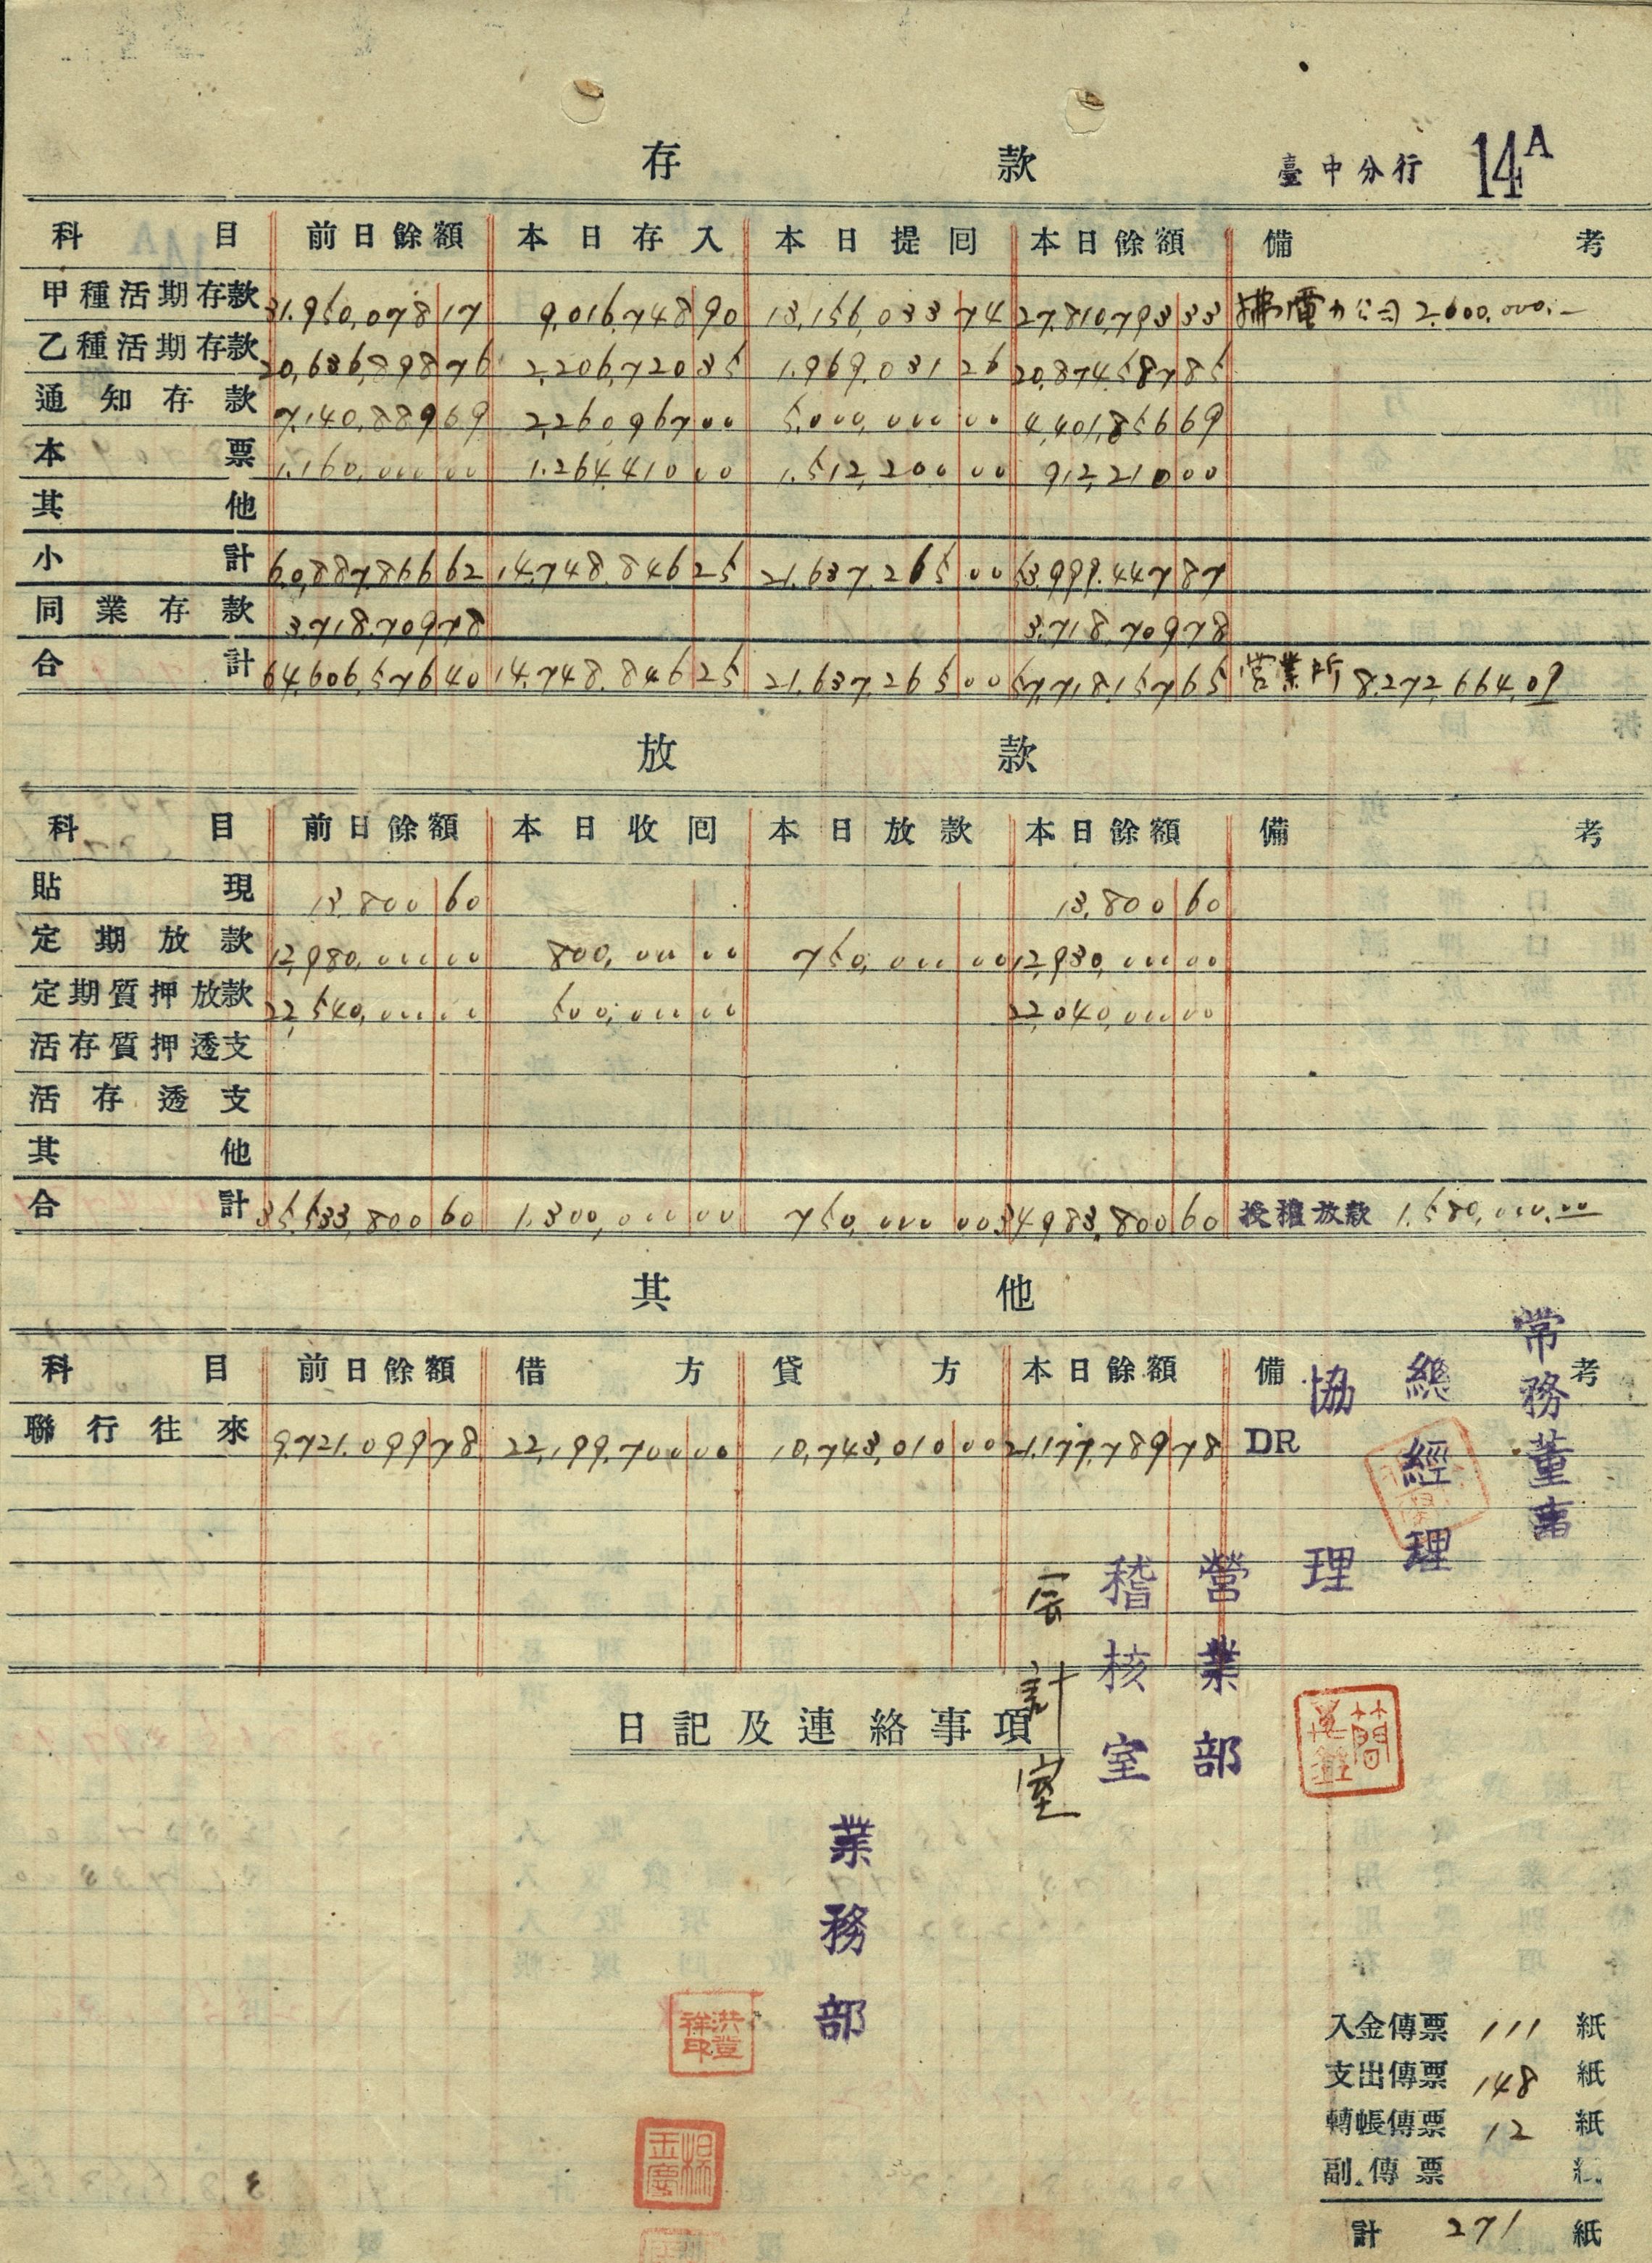 存款 臺中分行 14A
科目 前日餘額 本日存入 本日提回 本日餘額 備考
甲種活期存款 31,950,078 17 9,016,748 90 13,156,033 74 27,810,793 33 電力公司 2,600,000.—
乙種活期存款 20,636,898 76 2,206,720 35 1,969,031 26 20,874,587 85
通知存款 7,140,889 69 2,260,967 00 5,000,000 00 4,401,856 69
本票 1,160,000 00 1,264,410 00 1,512,200 00 912,210 00
其他
小計 60,887,866 62 14,748,846 25 21,637,265 00 53,999,447 87
同業存款 3,718,709 78 3,718,709 78
合計 64,606,576 40 14,748,846 25 21,637,265 00 57,718,157 65 営業所 8,272,664.09
放款
科目 前日餘額 本日收回 本日放款 本日餘額 備考
貼現 13,800 60 13,800 60
定期放款 12,980,000 00 800,000 00 750,000 00 12,930,000 00
定期質押放款 22,540,000 00 500,000 00 22,040,000 00
活存質押透支
活存透支
其他
合計 35,533,800 60 1,300,000 00 750,000 00 34,983,800 60 授權放款 1,580,000.00
其他
科目 前日餘額 借方 貸方 本日餘額 備考
聯行往來 9,721,099 78 22,199,700 00 10,743,010 00 21,177,789 78 DR
常務董事
總經理
協理
營業部
稽核室
会計室
日記及連絡事項
業務部
洪登祥印
入金傳票 111 紙
支出傳票 148 紙
轉帳傳票 12 紙
副傳票 紙
計 271 紙